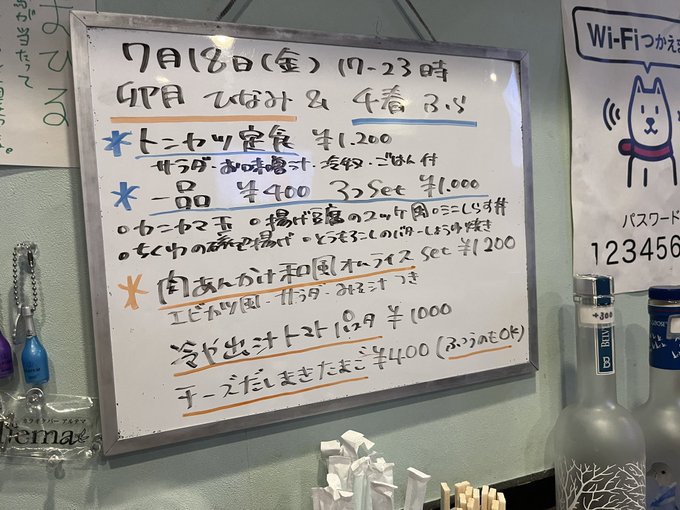 7月18日(金) 17-23時
卯月 ひなみ &
* トンカツ定食 ¥1.200
サラダ・お味噌汁・冷奴・ごはん付
* 一品 ¥400 3つSet ¥1.000
。カニカマ玉 。揚げ豆腐のユッケ風 。ミニしらす丼
。ちくわの磯辺揚げ 。とうもろこしのバターしょうゆ焼き
* 肉あんかけ和風オムライス set ¥1200
エビカツ1コ・サラダ・みそ汁つき
冷や出汁トマトパスタ ¥1000
チーズだしまきたまご ¥400 (ふつうのもOK)
Wi-Fiつかえま
パスワード
123456
カラオケバー アルテマ
ltema
+300
BELV
B
GOOSE